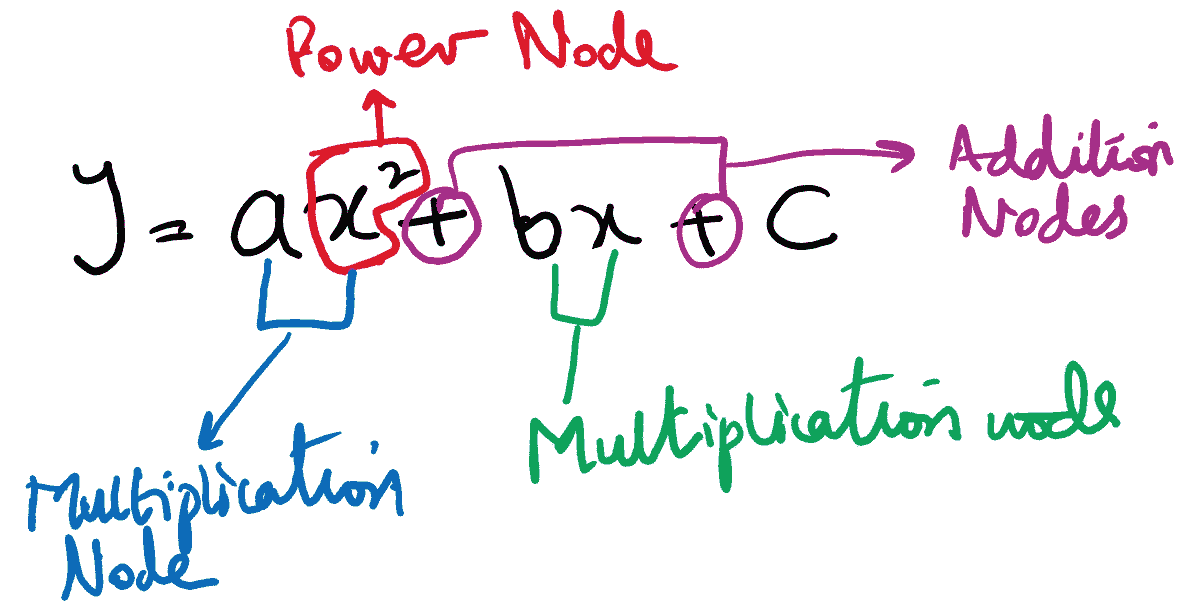 Power Node
y = ax² + bx + c
Addition
Nodes
Multiplication node
Multiplication
Node